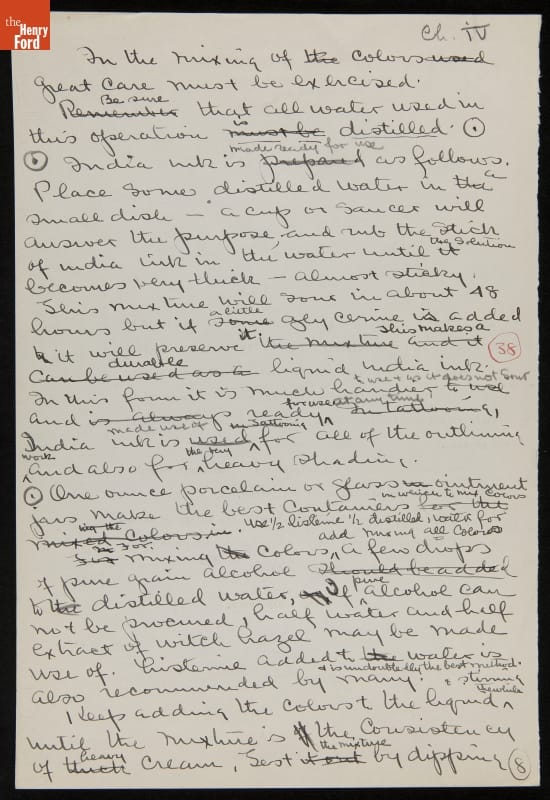 the
Henry
Ford
Ch. IV
In the mixing of the colors used
great care must be exercised.
Be sure
Remember that all water used in
is
this operation must be distilled.
made ready for use
India ink is prepared as follows.
Place some distilled water in the a
small dish — a cup or saucer will
answer the purpose and rub the stick
the solution
of india ink in the water until it
becomes very thick — almost sticky.
This mixture will sour in about 48
a little
hours but if some glycerine is added
it this makes a
to it will preserve the mixture and it
38
durable
can be used as a liquid india ink.
to use & as it does not sour
In this form it is much handier to use
for use at any time
and is always ready in tattooing,
made use of in tattooing
India ink is used for all of the outlining
work the very
and also for heavy shading.
One ounce porcelain or glass ointment
in which to mix colors
jars make the best containers for the
use 1/2 listerine 1/2 distilled water for
mixed colors in.
add mixing all colors
For
mixing the colors, a few drops
of pure grain alcohol should be added
pure
to the distilled water, if alcohol can
not be procured, half water and half
extract of witch hazel may be made
use of. Listerine added to the water is
& is undoubtedly the best method.
also recommended by many.
& stirring
the while
Keep adding the colors to the liquid
until the mixture is the consistency
heavy the mixture
of thick cream, test it out by dipping
8